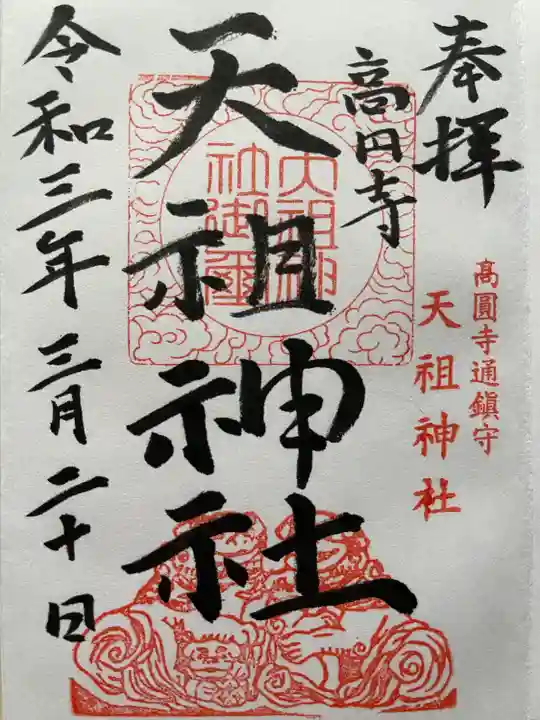 奉拝
高圓寺通鎮守
天祖神社
高円寺
天祖神社
天祖神
社御璽
令和三年三月二十日